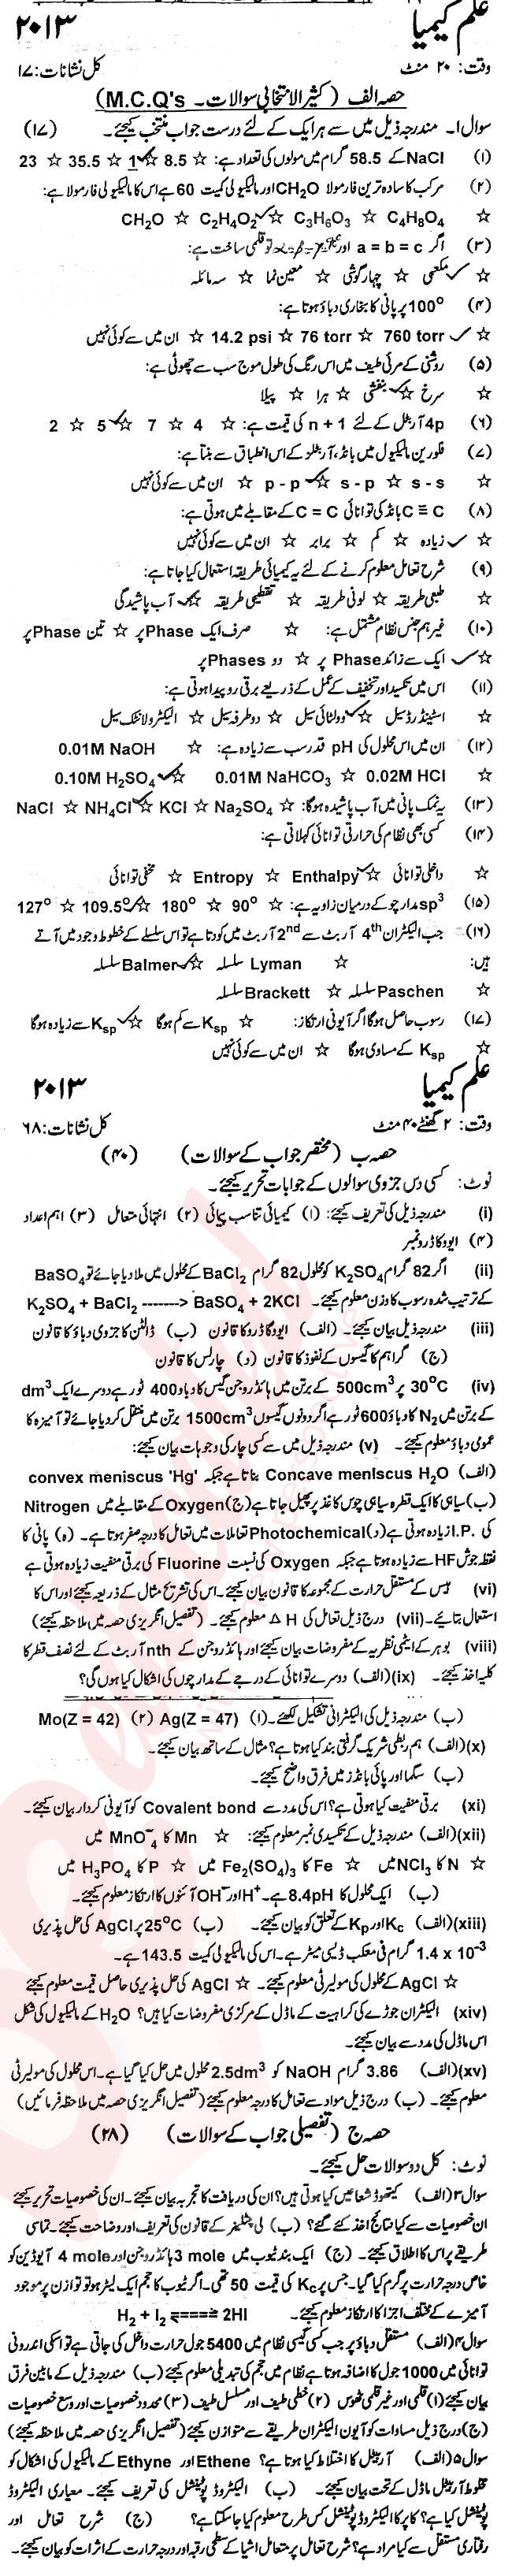 علم کیمیا ۲۰۱۳
وقت: ۲۰ منٹ کل نشانات: ۱۷
حصہ الف (کثیر الانتخابی سوالات۔ M.C.Q's)
سوال ۱۔ مندرجہ ذیل میں سے ہر ایک کے لئے درست جواب منتخب کیجئے۔ (۱۷)
(۱) NaCl کے 58.5 گرام میں مولوں کی تعداد ہے: ☆ 8.5 ☆ 1 ☆ 35.5 ☆ 23
(۲) مرکب کا سادہ ترین فارمولا CH2O اور مالیکیولی کمیت 60 ہے اس کا مالیکیولی فارمولا ہے:
☆ C4H8O4 ☆ C3H6O3 ☆ C2H4O2 ☆ CH2O
(۳) اگر a = b = c اور تو قلمی ساخت ہے:
☆ مکعبی ☆ چہار گوشی ☆ معین نما ☆ سہ مائلہ
(۴) 100° پر پانی کا بخاری دباؤ ہوتا ہے:
☆ 760 torr ☆ 76 torr ☆ 14.2 psi ☆ ان میں سے کوئی نہیں
(۵) روشنی کے مرئی طیف میں اس رنگ کی طول موج سب سے چھوٹی ہے:
☆ سرخ ☆ بنفشی ☆ ہرا ☆ پیلا
(۶) 4p آربٹل کے لئے n + 1 کی قیمت ہے: ☆ 4 ☆ 7 ☆ 5 ☆ 2
(۷) فلورین مالیکیول میں بانڈ، آربٹلز کے اس انطباق سے بنتا ہے:
☆ s - s ☆ s - p ☆ p - p ☆ ان میں سے کوئی نہیں
(۸) C ≡ C بانڈ کی توانائی C = C کے مقابلے میں ہوتی ہے:
☆ زیادہ ☆ کم ☆ برابر ☆ ان میں سے کوئی نہیں
(۹) شرح تعامل معلوم کرنے کے لئے یہ کیمیائی طریقہ استعمال کیا جاتا ہے:
☆ طبعی طریقہ ☆ لونی طریقہ ☆ تقطیعی طریقہ ☆ آب پاشیدگی
(۱۰) غیر ہم جنس نظام مشتمل ہے: ☆ صرف ایک Phase پر ☆ تین Phase پر
☆ ایک سے زائد Phase پر ☆ دو Phases پر
(۱۱) اس میں تکسید اور تخفیف کے عمل کے ذریعے برقی رو پیدا ہوتی ہے:
☆ اسٹینڈرڈ سیل ☆ وولٹائی سیل ☆ دو طرفہ سیل ☆ الیکٹرولائٹک سیل
(۱۲) ان میں اس محلول کی pH قدر سب سے زیادہ ہے: ☆ 0.01M NaOH
☆ 0.02M HCl ☆ 0.01M NaHCO3 ☆ 0.10M H2SO4
(۱۳) یہ نمک پانی میں آب پاشیدہ ہوگا: ☆ Na2SO4 ☆ KCl ☆ NH4Cl ☆ NaCl
(۱۴) کسی بھی نظام کی حرارتی توانائی کہلاتی ہے:
☆ داخلی توانائی ☆ Enthalpy ☆ Entropy ☆ مخفی توانائی
(۱۵) sp3 مدارچو کے درمیان زاویہ ہے: ☆ 90° ☆ 180° ☆ 109.5° ☆ 127°
(۱۶) جب الیکٹران 4th آربٹ سے 2nd آربٹ میں کودتا ہے تو اس سلسلے کے خطوط وجود میں آتے
ہیں: ☆ Lyman سلسلہ ☆ Balmer سلسلہ
☆ Paschen سلسلہ ☆ Brackett سلسلہ
(۱۷) رسوب حاصل ہوگا اگر آیونی ارتکاز: ☆ Ksp سے کم ہوگا ☆ Ksp سے زیادہ ہوگا
☆ Ksp کے مساوی ہوگا ☆ ان میں سے کوئی نہیں
علم کیمیا ۲۰۱۳
وقت: ۲ گھنٹے ۴۰ منٹ کل نشانات: ۶۸
حصہ ب (مختصر جواب کے سوالات) (۴۰)
نوٹ: کسی دس جزوی سوالوں کے جوابات تحریر کیجئے۔
(i) مندرجہ ذیل کی تعریف کیجئے: (۱) کیمیائی تناسب پیائی (۲) انتہائی متعامل (۳) اہم اعداد
(۴) ایووگاڈرو نمبر
(ii) اگر 82 گرام K2SO4 کو محلول 82 گرام BaCl2 کے محلول میں ملا دیا جائے تو BaSO4
کے ترتیب شدہ رسوب کا وزن معلوم کیجئے۔ K2SO4 + BaCl2 -------> BaSO4 + 2KCl
(iii) مندرجہ ذیل بیان کیجئے۔ (الف) ایووگاڈرو کا قانون (ب) ڈالٹن کا جزوی دباؤ کا قانون
(ج) گراہم کا گیسوں کے نفوذ کا قانون (د) چارلس کا قانون
(iv) 30°C پر 500cm3 کے برتن میں ہائڈروجن گیس کا دباؤ 400 ٹور ہے دوسرے ایک dm3
کے برتن میں N2 کا دباؤ 600 ٹور ہے اگر دونوں گیسوں 1500cm3 برتن میں منتقل کر دیا جائے تو آمیزہ کا
عمومی دباؤ معلوم کیجئے۔ (v) مندرجہ ذیل میں سے کسی چار کی وجوہات بیان کیجئے:
(الف) Concave meniscus H2O بناتا ہے جبکہ convex meniscus 'Hg'
(ب) سیاہی کا ایک قطرہ سیاہی چوس کاغذ پر پھیل جاتا ہے (ج) Oxygen کے مقابلے میں Nitrogen
کی I.P. زیادہ ہوتی ہے (د) Photochemical تعاملات میں تعامل کا درجہ صفر ہوتا ہے۔ (ہ) پانی کا
نقطہ جوش HF سے زیادہ ہوتا ہے جبکہ Oxygen کی نسبت Fluorine کی برقی منفیت زیادہ ہوتی ہے
(vi) ہیس کے مستقل حرارت کے مجموعہ کا قانون بیان کیجئے۔ اس کی تشریح مثال کے ذریعہ کیجئے اور اس کا
استعمال بتائیے۔ (vii) درج ذیل تعامل کی ΔH معلوم کیجئے۔ (تفصیل انگریزی حصہ میں ملاحظہ کیجئے)
(viii) بوہر کے ایٹمی نظریہ کے مفروضات بیان کیجئے اور ہائڈروجن کے nth آربٹ کے لئے نصف قطر کا
کلیہ اخذ کیجئے۔ (ix) (الف) دوسرے توانائی کے درجے کے مدارچوں کی اشکال کیا ہوں گی؟
(ب) مندرجہ ذیل کی الیکٹرانی تشکیل لکھئے۔ (۱) Ag(Z = 47) (۲) Mo(Z = 42)
(x) (الف) ہم ربطی شریک گرفتی بند کیا ہوتا ہے؟ مثال کے ساتھ بیان کیجئے۔
(ب) سگما اور پائی بانڈز میں فرق واضح کیجئے۔
(xi) برقی منفیت کیا ہوتی ہے؟ اس کی مدد سے Covalent bond کو آیونی کردار بیان کیجئے۔
(xii) (الف) مندرجہ ذیل کے تکسیدی نمبر معلوم کیجئے: ☆ Mn کا MnO4- میں
☆ N کا NCl3 میں ☆ Fe کا Fe2(SO4)3 میں ☆ P کا H3PO4 میں
(ب) ایک محلول کا pH 8.4 ہے۔ H+ اور OH- آئنوں کا ارتکاز معلوم کیجئے۔
(xiii) (الف) Kc اور Kp کے تعلق کو بیان کیجئے۔ (ب) 25°C پر AgCl کی حل پذیری
1.4 x 10-3 گرام فی مکعب ڈیسی میٹر ہے۔ اس کی مالیکیولی کمیت 143.5 ہے۔
☆ AgCl کے محلول کی مولیرٹی معلوم کیجئے۔ ☆ AgCl کی حل پذیری حاصل قیمت معلوم کیجئے
(xiv) الیکٹران جوڑے کی کراہیت کے ماڈل کے مرکزی مفروضات کیا ہیں؟ H2O کے مالیکیول کی شکل
اس ماڈل کی مدد سے بیان کیجئے۔
(xv) (الف) 3.86 گرام NaOH کو 2.5dm3 محلول میں حل کیا گیا ہے۔ اس محلول کی مولیرٹی
معلوم کیجئے۔ (ب) درج ذیل مواد سے تعامل کا درجہ معلوم کیجئے (تفصیل انگریزی حصہ میں ملاحظہ فرمائیں)
حصہ ج (تفصیلی جواب کے سوالات) (۲۸)
نوٹ: کل دو سوالات حل کیجئے۔
سوال ۳ (الف) کیتھوڈ شعاعیں کیا ہوتی ہیں؟ ان کی دریافت کا تجربہ بیان کیجئے۔ ان کی خصوصیات تحریر کیجئے
ان خصوصیات سے کیا نتائج اخذ کئے گئے؟ (ب) لی چٹیلیئر کے قانون کی تعریف اور وضاحت کیجئے۔ تماسی
طریقے پر اس کا اطلاق کیجئے۔ (ج) ایک بند ٹیوب میں 3 mole ہائڈروجن اور 4 mole آیوڈین کو
خاص درجہ حرارت پر گرم کیا گیا۔ جس پر Kc کی قیمت 50 تھی۔ اگر ٹیوب کا حجم ایک لیٹر ہو تو توازن پر موجود
آمیزے کے مختلف اجزا کا ارتکاز معلوم کیجئے۔ H2 + I2 <====> 2HI
سوال ۴ (الف) مستقل دباؤ پر جب کسی گیسی نظام میں 5400 جول حرارت داخل کی جاتی ہے تو اسکی اندرونی
توانائی میں 1000 جول کا اضافہ ہوتا ہے نظام میں حجم کی تبدیلی معلوم کیجئے (ب) مندرجہ ذیل کے مابین فرق
بیان کیجئے (۱) قلمی اور غیر قلمی ٹھوس (۲) خطی طیف اور مسلسل طیف (۳) محدود خصوصیات اور وسیع خصوصیات
(ج) درج ذیل مساوات کو آیون الیکٹران طریقے سے متوازن کیجئے (تفصیل انگریزی حصہ میں ملاحظہ کیجئے)
سوال ۵ (الف) آربٹل کا اختلاط کیا ہوتا ہے؟ Ethene اور Ethyne کے مالیکیول کی اشکال کو
مخلوط آربٹل ماڈل کے تحت بیان کیجئے۔ (ب) الیکٹروڈ پوٹینشل کی تعریف کیجئے۔ معیاری الیکٹروڈ
پوٹینشل کیا ہے؟ کاپر کا الیکٹروڈ پوٹینشل کس طرح معلوم کیا جاسکتا ہے؟ (ج) شرح تعامل اور
رفتاری مستقل سے کیا مراد ہے؟ شرح تعامل پر متعامل اشیا کے سطحی رقبہ اور درجہ حرارت کے اثرات کو بیان کیجئے۔